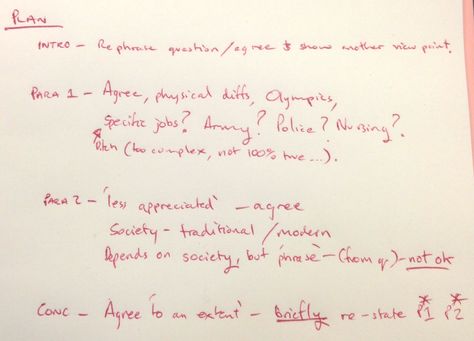 PLAN
INTRO - Rephrase question/agree & show another view point.
PARA 1 - Agree, physical diffs, Olympics,
Specific jobs? Army? Police? Nursing?.
Ditch (too complex, not 100% true...).
PARA 2 - 'less appreciated' - agree
Society - traditional/modern
Depends on society, but 'phrase' - (from q) - not ok
CONC - Agree 'to an extent' - Briefly re-state P1 P2